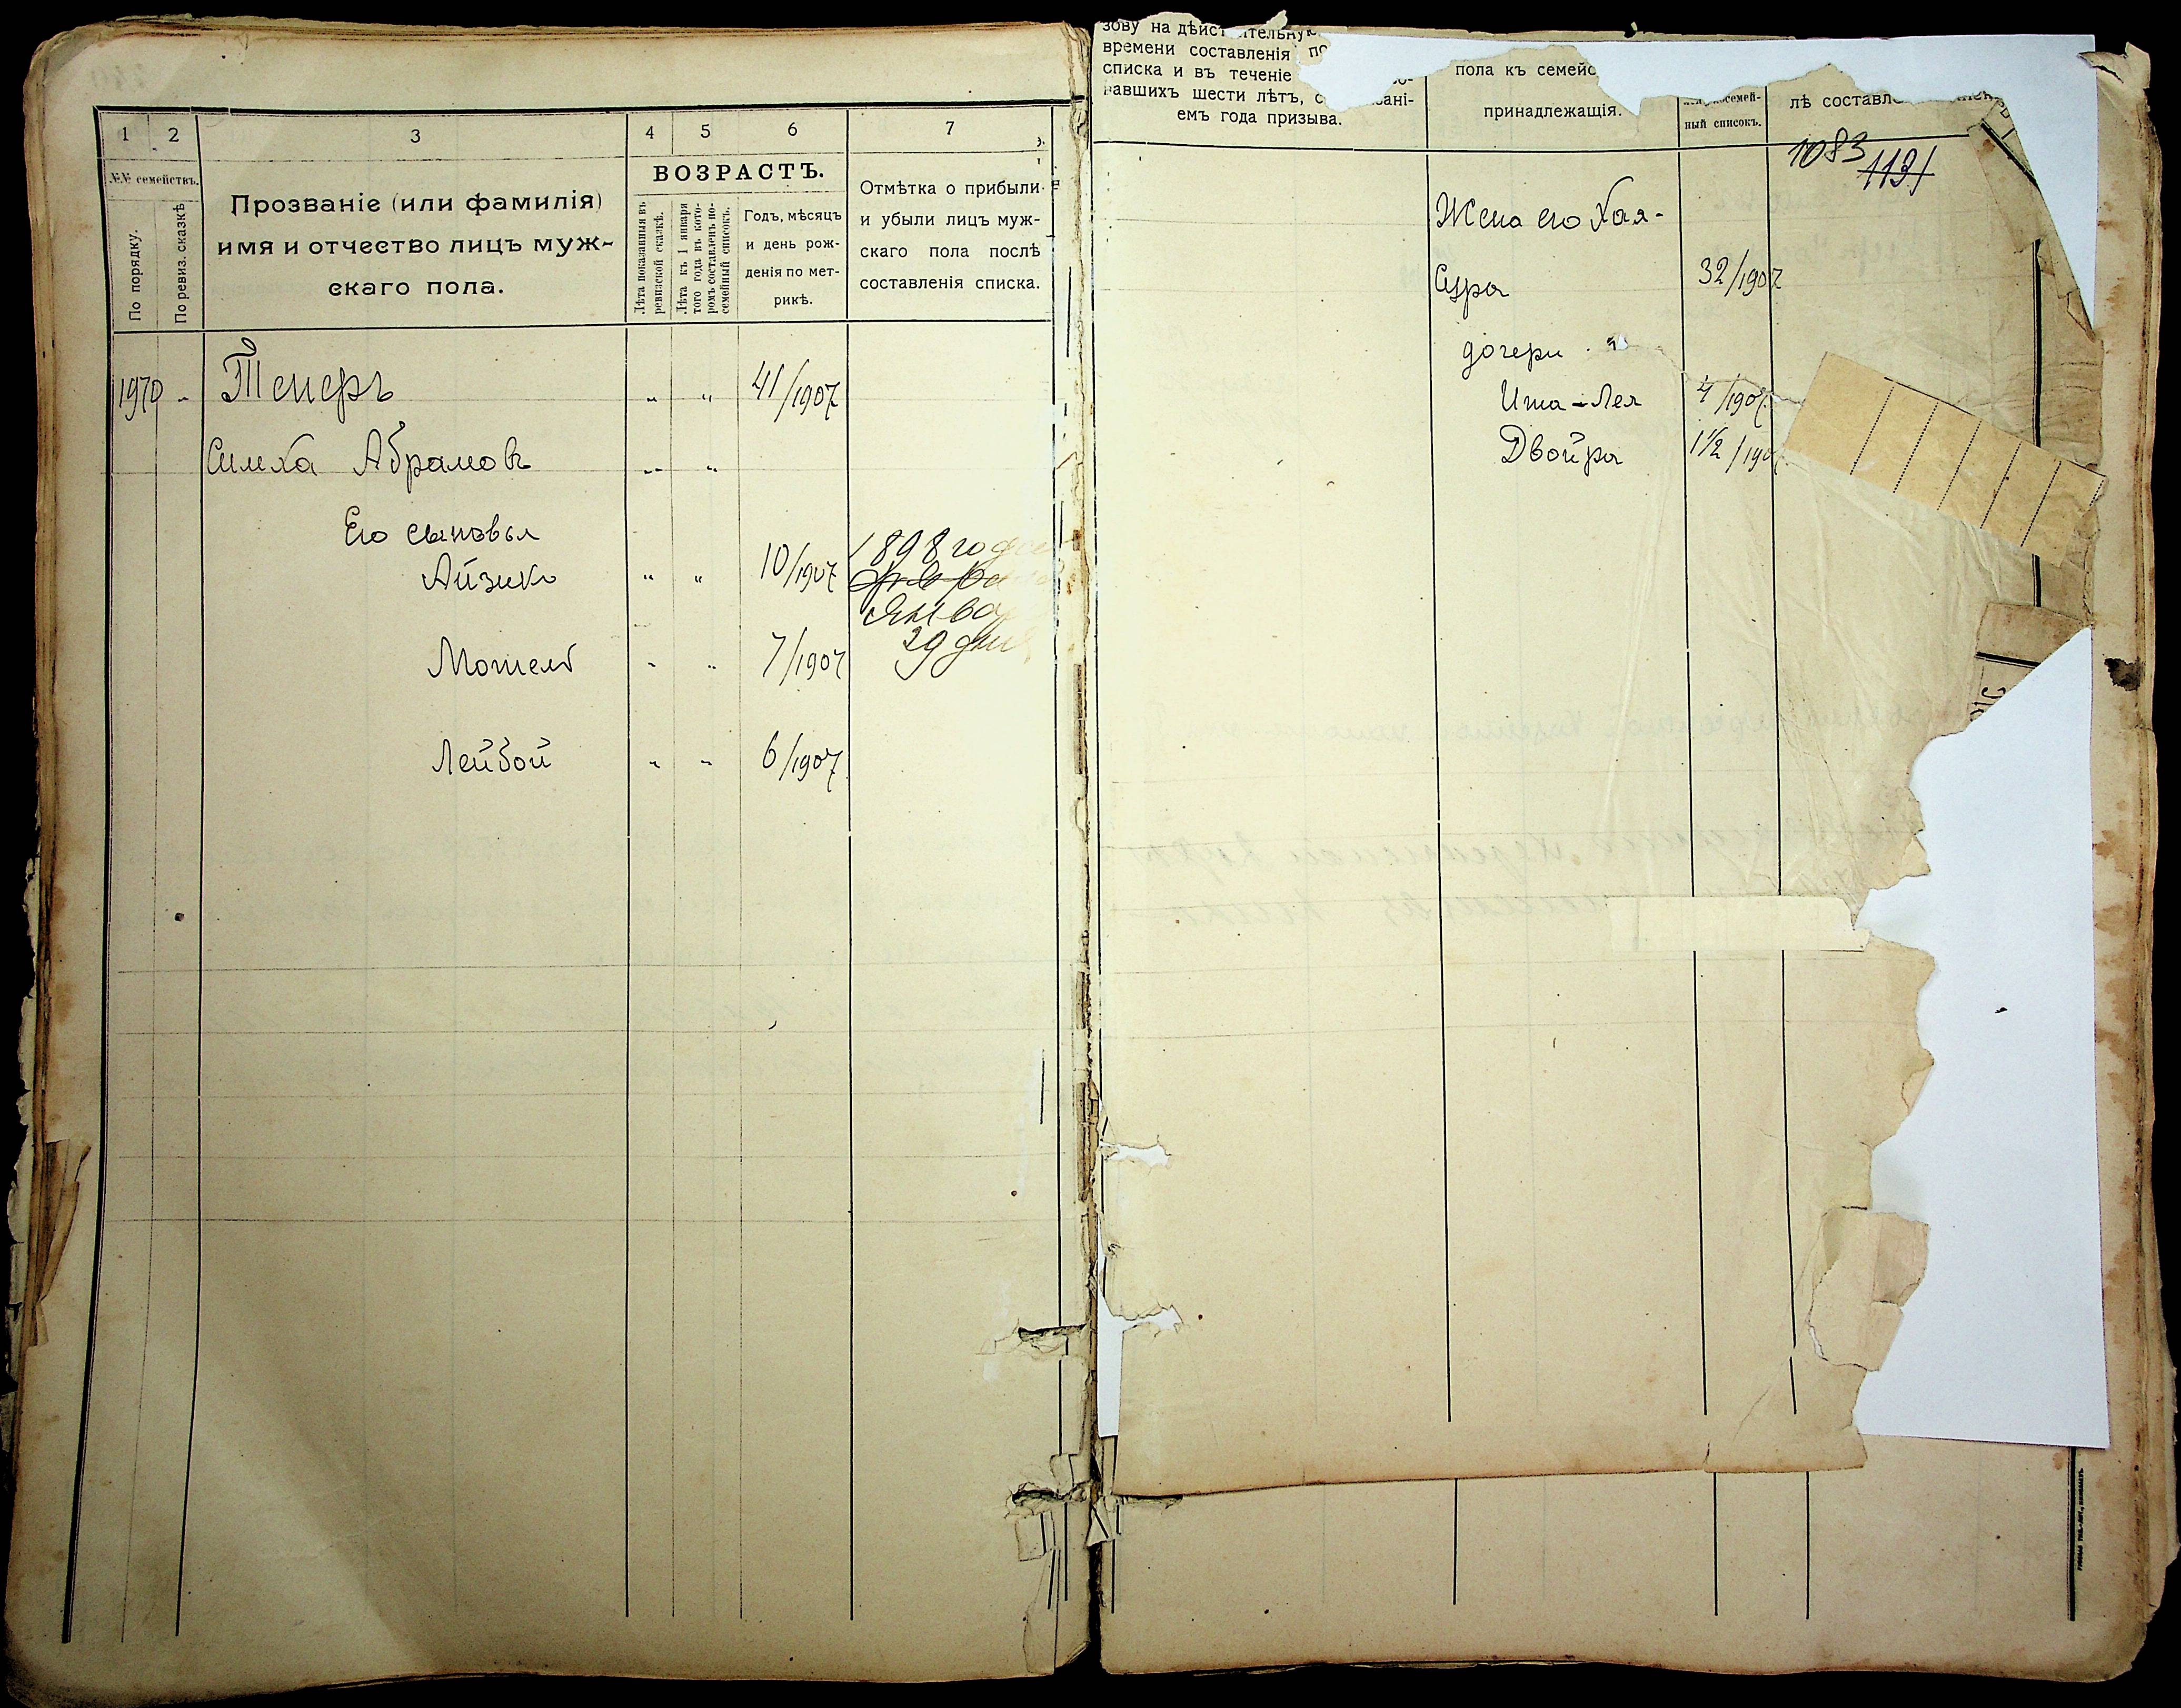 1 2 3 4 5 6 7
№№ семействъ.
По порядку.
По ревиз. сказкѣ
Прозваніе (или фамилія)
имя и отчество лицъ муж-
скаго пола.
ВОЗРАСТЪ.
Лѣта показанныя въ
ревизской сказкѣ.
Лѣта къ 1 января
того года въ кото-
ромъ составленъ по-
семейный списокъ.
Годъ, мѣсяцъ
и день рож-
денія по мет-
рикѣ.
Отмѣтка о прибыли
и убыли лицъ муж-
скаго пола послѣ
составленія списка.
1970 " " " 41/1907
Симха Абрамовъ " "
Его сыновья
Айзикъ " " 10/1907
1898 года
29 дня
Мотель " " 7/1907
Лейбой " " 6/1907
зову на дѣйст
времени составленія
списка и въ теченіе
навшихъ шести лѣтъ,
емъ года призыва.
пола къ семейс
принадлежащія.
ный списокъ.
лѣ составле
1083
1131
Жена его Хая-
Сура 32/1907
дочери
Ита-Лея 4/190
Двойра 1 1/2/190